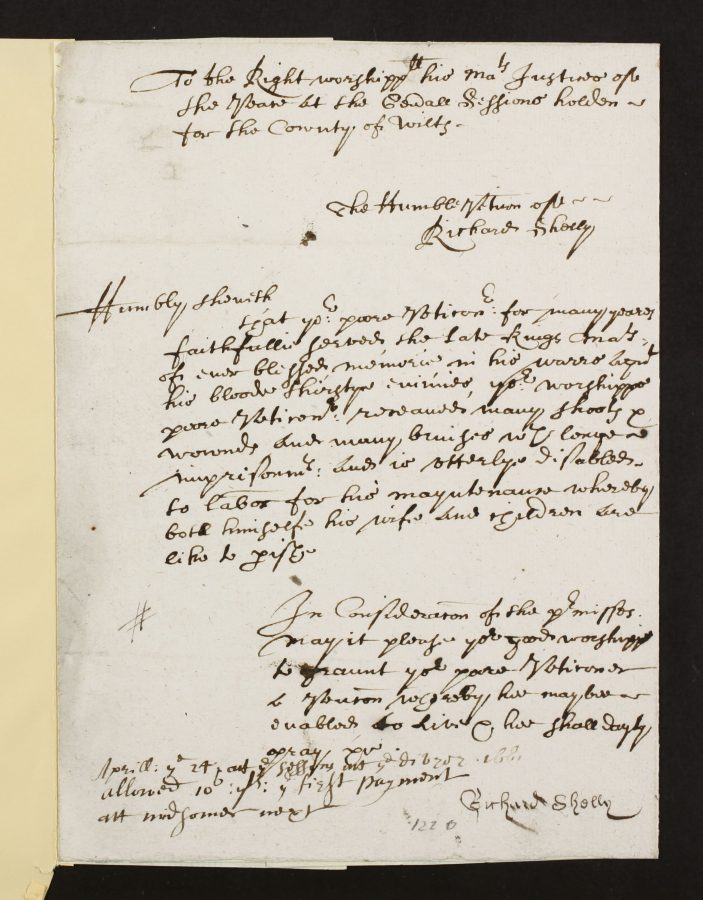 To the Right worshippll his Mats Justices of
the Peace at the Sessions holden
for the County of Wilts
The Humble Peticon of
Richard Shelly
Humbly sheweth
that yor: poore Peticonr: for many yeares
faithfullie served the late Kings Mats:
of ever blessed memorie in his warrs agst
his bloode thirstye enimies, yor: worshipps
poore Peticonr: receaved many shoots &
wounds and many bruises wth longe
imprisonmt: and is utterlye disabled
to labor for his mayntenance whereby
both himselfe his wife and children are
like to perish
In Consideracon of the prmisses
may it please yor good worshipps
to graunt yor poore Peticoner
a Pencon whereby hee may bee
enabled to live & hee shall dayly
pray &c
Aprill: ye 24: att ye sessions att ye 1661
allowed 10s: ye first payment
att midsomer next
Richard Shelly
1220